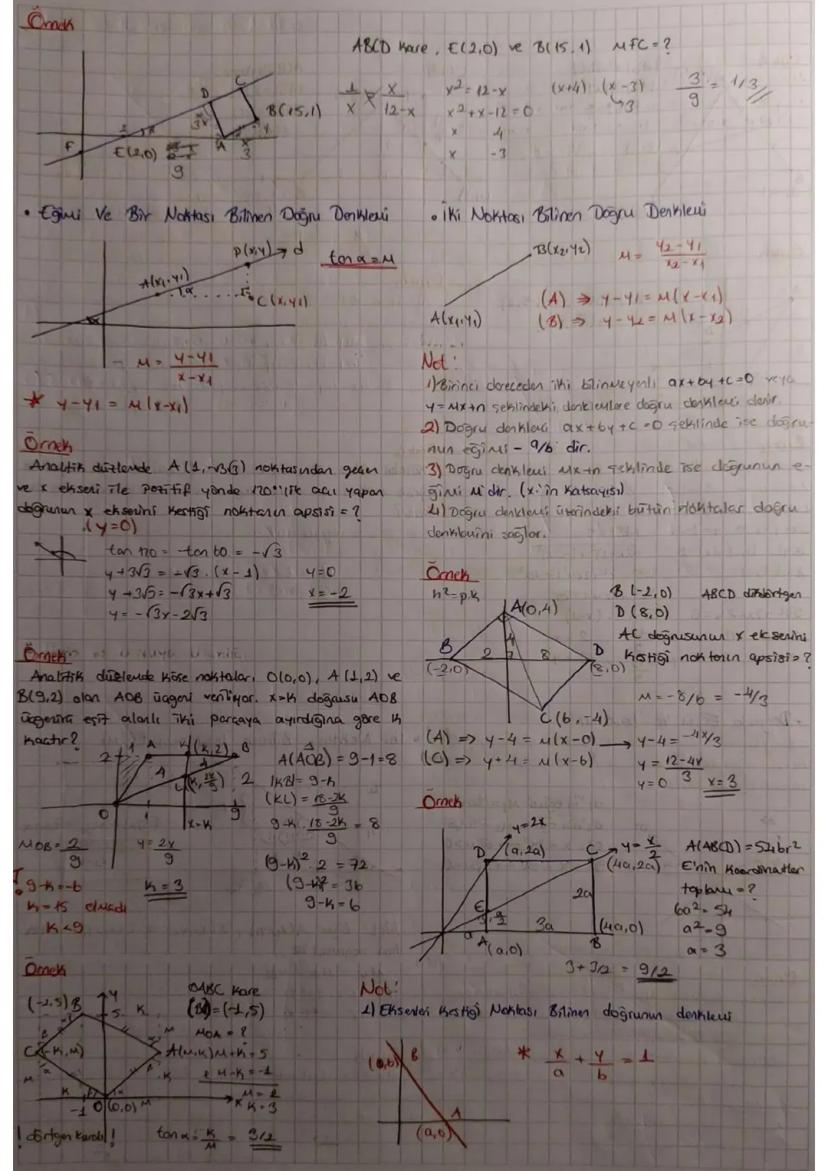 Örnek
ABCD kare, E(2,0) ve B(15,1) MFC=?
1/x x/12-x
x²=12-x
x²+x-12=0
x 4
x -3
(x+4) (x-3)
3
3/9 = 1/3
D C
3x
B(15,1)
F E(2,0) A x
3
9
• Eğimi Ve Bir Noktası Bilinen Doğru Denklemi
P(x,y) d
tan α = M
A(x1,y1)
α
C(x,y1)
M = y-y1/x-x1
* y-y1 = M(x-x1)
• İki Noktası Bilinen Doğru Denklemi
B(x2,y2)
M = y2-y1/x2-x1
A(x1,y1)
(A) ⇒ y-y1 = M(x-x1)
(B) ⇒ y-y2 = M(x-x2)
Not:
1) Birinci dereceden iki bilinmeyenli ax+by+c=0 veya
y=Mx+n şeklindeki denklemlere doğru denklemi denir.
2) Doğru denklemi ax+by+c=0 şeklinde ise doğru-
nun eğimi -a/b dir.
3) Doğru denklemi Mx+n şeklinde ise doğrunun e-
ğimi M dir. (x'in katsayısı)
4) Doğru denklemi üzerindeki bütün noktalar doğru
denklemini sağlar.
Örnek
Analitik düzlemde A(1,-3√3) noktasından geçen
ve x ekseni ile pozitif yönde 120°'lik açı yapan
doğrunun x eksenini kestiği noktanın apsisi = ?
(y=0)
tan 120 = -tan 60 = -√3
y+3√3 = -√3.(x-1)
y+3√3 = -√3x+√3
y = -√3x-2√3
y=0
x=-2
Örnek
h²=p.k
A(0,4)
B(-2,0)
D(8,0)
ABCD dikdörtgen
AC doğrusunun x eksenini
kestiği noktanın apsisi = ?
B
(-2,0)
2 4 8
D
(8,0)
C(6,-4)
M = -8/6 = -4/3
(A) ⇒ y-4 = M(x-0) → y-4 = -4x/3
(C) ⇒ y+4 = M(x-6)
y = 12-4x/3
y=0 x=3
Örnek
Analitik düzlemde köşe noktaları, O(0,0), A(1,2) ve
B(9,2) olan AOB üçgeni veriliyor. x=k doğrusu AOB
üçgenini eşit alanlı iki parçaya ayırdığına göre k
kaçtır?
2 1 A K(k,2) B
4 4
L(k,2k/9) 2
O 1 9
x=k
A(AOB) = 9-1=8
|KB| = 9-k
(KL) = 18-2k/9
9-k . 18-2k/9 = 8
(9-k)².2 = 72
(9-k)² = 36
9-k = 6
MOB = 2/9
y = 2x/9
9-k=-6
k=15 olmadı
k<9
k=3
Örnek
y=2x
D (a,2a) C y=x/2
(4a,2a)
E a/2 2a
a A 3a (4a,0)
(a,0) B
A(ABCD)=54br²
E'nin koordinatlar
toplamı = ?
6a²=54
a²=9
a=3
3+3/2 = 9/2
Örnek
OABC kare
(B)=(-1,5)
MOA = ?
(-1,5) B y
5 K
C(-K,M) A(M,K)
M+K=5
M-K=-1
M=2
K=3
-1 O(0,0) M x
! dörtgen kuralı !
tan α = K/M = 3/2
Not:
1) Eksenleri Kestiği Noktası Bilinen doğrunun denklemi
(0,b) B
A
(a,0)
* x/a + y/b = 1